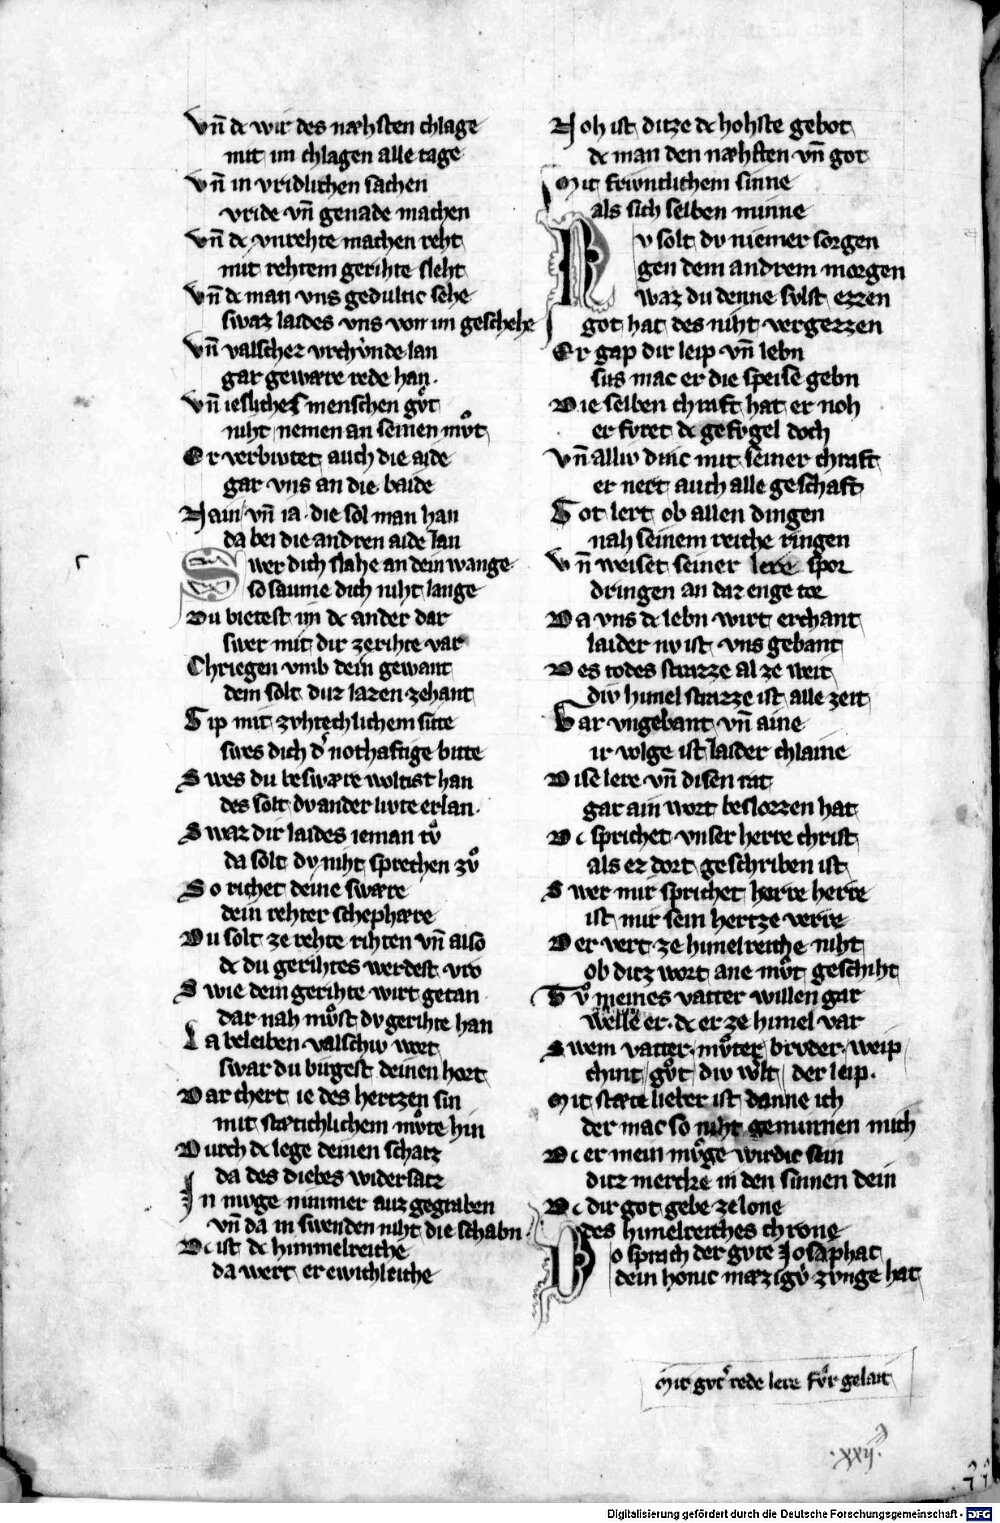 Vn̄ dc wir des næhsten chlage
mit im chlagen alle tage
Vn̄ in vridlichen sachen
vride vn̄ genade machen
Vn̄ dc vnrehte machen reht
mit rehtem gerihte sleht
Vn̄ dc man vns gedultic sehe
swaz laides vns von im geschehe
Vn̄ valscher vrchv̀nde lan
gar gewære rede han.
Vn̄ iesliches menschen gv̊t
niht nemen an seinen mv̊t
Er verbivtet auch die aide
gar vns an die baide
Nain vn̄ ia. die sol man han
da bei die andren aide lan
Swer dich slahe an dein wange
so saume dich niht lange
Du bietest im dc ander dar
swer mit dir ze rihte var
Chriegen vmb dein gewant
dem solt duz lazen zehant
Gip mit zvhtechlichem sitte
swes dich d' nothaftige bitte
Swes du beswære woltist han
des solt dv ander livte erlan.
Swaz dir laides ieman tv̊
da solt dv niht sprechen zv̊
So richet deine swære
dein rehter schephære
Du solt ze rehte rihten vn̄ also
dc du gerihtes werdest vro
Swie dein gerihte wirt getan
dar nah mv̊st dv gerihte han
La beleiben valschiv wort
swar du birgest deinen hort
Dar chert ie des hertzen sin
mit stætichlichem mv̊te hin
Durch dc lege deinen schatz
da des diebes widersatz
In mvge nimmer auz gegraben
vn̄ da in swenden niht die schabn.
Dc ist dc himmelreiche
da wert er ewichleiche
Noh ist ditze dc hohste gebot
dc man den næhsten vn̄ got
Mit frivntlichem sinne
als sich selben minne
Nv solt dv niemer sorgen
gen dem andrem morgen
waz du denne svlst ezzen
got hat des niht vergezzen
Er gap dir leip vn̄ lebn
sus mac er die speise gebn
Die selben chraft hat er noh
er fvret dc gefvgel doch
Vn̄ alliv dinc mit seiner chraft
er nert auch alle geschaft
Got lert ob allen dingen
nah seinem reiche ringen
Vn̄ weiset seiner lere spor
dringen an daz enge tor
Da vns dc lebn wirt erchant
laider nv ist vns gebant
Des todes strazze al ze weit
div himel strazze ist alle zeit
Gar vngebant vn̄ aine
ir volge ist laider chlaine
Dise lere vn̄ disen rat
gar ain wort beslozzen hat
Dc sprichet vnser herre christ
als ez dort geschriben ist
Swer mir sprichet herre herre
ist mir sein hertze verre
Der vert ze himelreiche niht
ob ditz wort ane mv̊t geschiht
Tv̊ meines vatter willen gar
welle er. dc er ze himel var
Swem vatter. mv̊ter bruder. weip
chint gv̊t div wlt der leip.
Mit stæte lieber ist danne ich
der mac so niht gewinnen mich
Dc er mein mv̊ge wirdic sein
ditz merche in den sinnen dein
Dc dir got gebe ze lone
des himelreiches chrone
Do sprach der gvte Josaphat
dein honic mæzigv̊ zvnge hat
mit gvt' rede lere fv̊r geleit
·xxij·